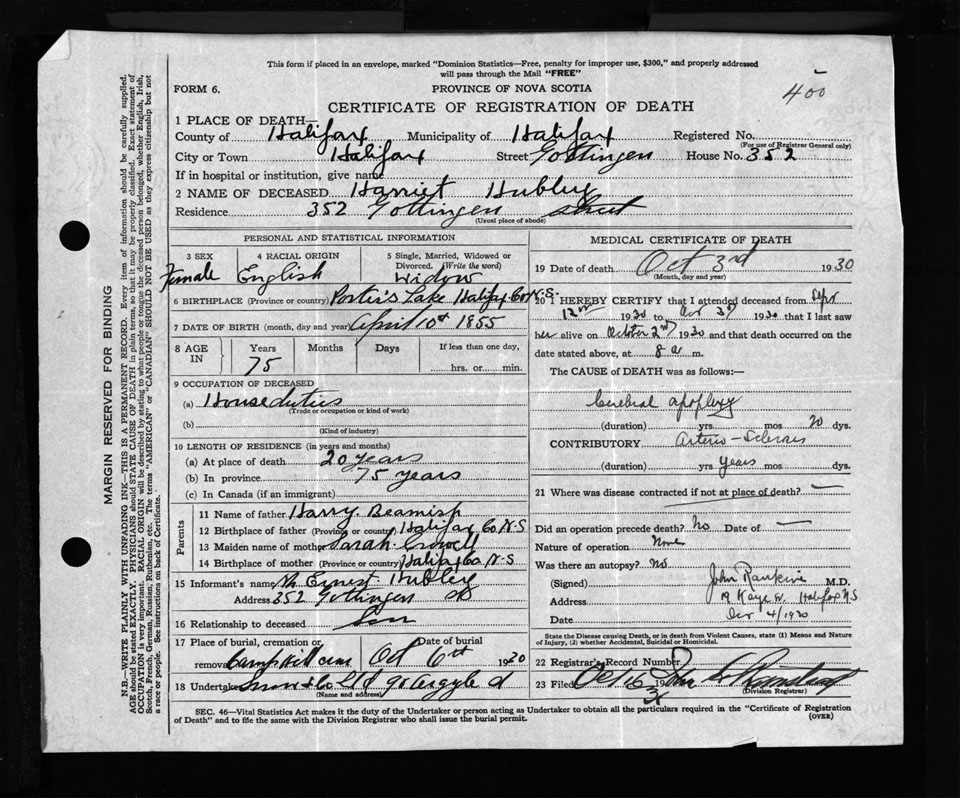 This form if placed in an envelope, marked "Dominion Statistics—Free, penalty for improper use, $300," and properly addressed
will pass through the Mail "FREE"
FORM 6. PROVINCE OF NOVA SCOTIA
400
CERTIFICATE OF REGISTRATION OF DEATH
1 PLACE OF DEATH—
County of Halifax Municipality of Halifax Registered No.
(For use of Registrar General only)
City or Town Halifax Street Gottingen House No. 352
If in hospital or institution, give name
2 NAME OF DECEASED Harriet Hubley
Residence 352 Gottingen Street
(Usual place of abode)
PERSONAL AND STATISTICAL INFORMATION
3 SEX 4 RACIAL ORIGIN 5 Single, Married, Widowed or
Divorced. (Write the word)
Female English Widow
6 BIRTHPLACE (Province or country) Porter's Lake Halifax Co N.S.
7 DATE OF BIRTH (month, day and year) April 10th 1855
8 AGE IN Years Months Days If less than one day,
75 hrs. or min.
9 OCCUPATION OF DECEASED
(a) House duties
(Trade or occupation or kind of work)
(b)
(Kind of industry)
10 LENGTH OF RESIDENCE (in years and months)
(a) At place of death 20 years
(b) In province 75 years
(c) In Canada (if an immigrant)
Parents
11 Name of father Harry Beamish
12 Birthplace of father (Province or country) Halifax Co N-S
13 Maiden name of mother Sarah Crowell
14 Birthplace of mother (Province or country) Halifax Co. N-S
15 Informant's name Mr Ernest Hubley
Address 352 Gottingen St
16 Relationship to deceased Son
17 Place of burial, cremation or Date of burial
removal Camp Hill cem Oct 6th 1930
18 Undertaker Snow & Co Ltd 90 Argyle St
(Name and address)
MEDICAL CERTIFICATE OF DEATH
19 Date of death Oct 3rd 1930
(Month, day and year)
20 I HEREBY CERTIFY that I attended deceased from Sept
12th 1930 to Oct 3rd 1930 that I last saw
her alive on October 2nd 1930 and that death occurred on the
date stated above, at 8 a m.
The CAUSE of DEATH was as follows:—
Cerebral apoplexy
(duration) yrs mos 20 dys.
CONTRIBUTORY Arterio-Sclerosis
(duration) yrs years mos dys.
21 Where was disease contracted if not at place of death? —
Did an operation precede death? No Date of —
Nature of operation None
Was there an autopsy? No
(Signed) John Rankine M.D.
Address 19 Kaye St. Halifax NS
Date Oct 4/1930
State the Disease causing Death, or in death from Violent Causes, state (1) Means and Nature
of Injury, (2) whether Accidental, Suicidal or Homicidal.
22 Registrar's Record Number
23 Filed Oct 16 1930
(Division Registrar)
SEC. 46—Vital Statistics Act makes it the duty of the Undertaker or person acting as Undertaker to obtain all the particulars required in the "Certificate of Registration
of Death" and to file the same with the Division Registrar who shall issue the burial permit.
(OVER)
MARGIN RESERVED FOR BINDING
N.B.—WRITE PLAINLY WITH UNFADING INK—THIS IS A PERMANENT RECORD. Every item of information should be carefully supplied.
AGE should be stated EXACTLY. PHYSICIANS should STATE CAUSE OF DEATH in plain terms, so that it may be properly classified. Exact statement of
OCCUPATION is very important. RACIAL ORIGIN will be described by stating to what people or race the deceased person belonged, whether English, Irish,
Scotch, French, German, Russian, Ruthenian, etc. The terms "AMERICAN" or "CANADIAN" SHOULD NOT BE USED as they express citizenship but not
a race or people. See instructions on back of Certificate.